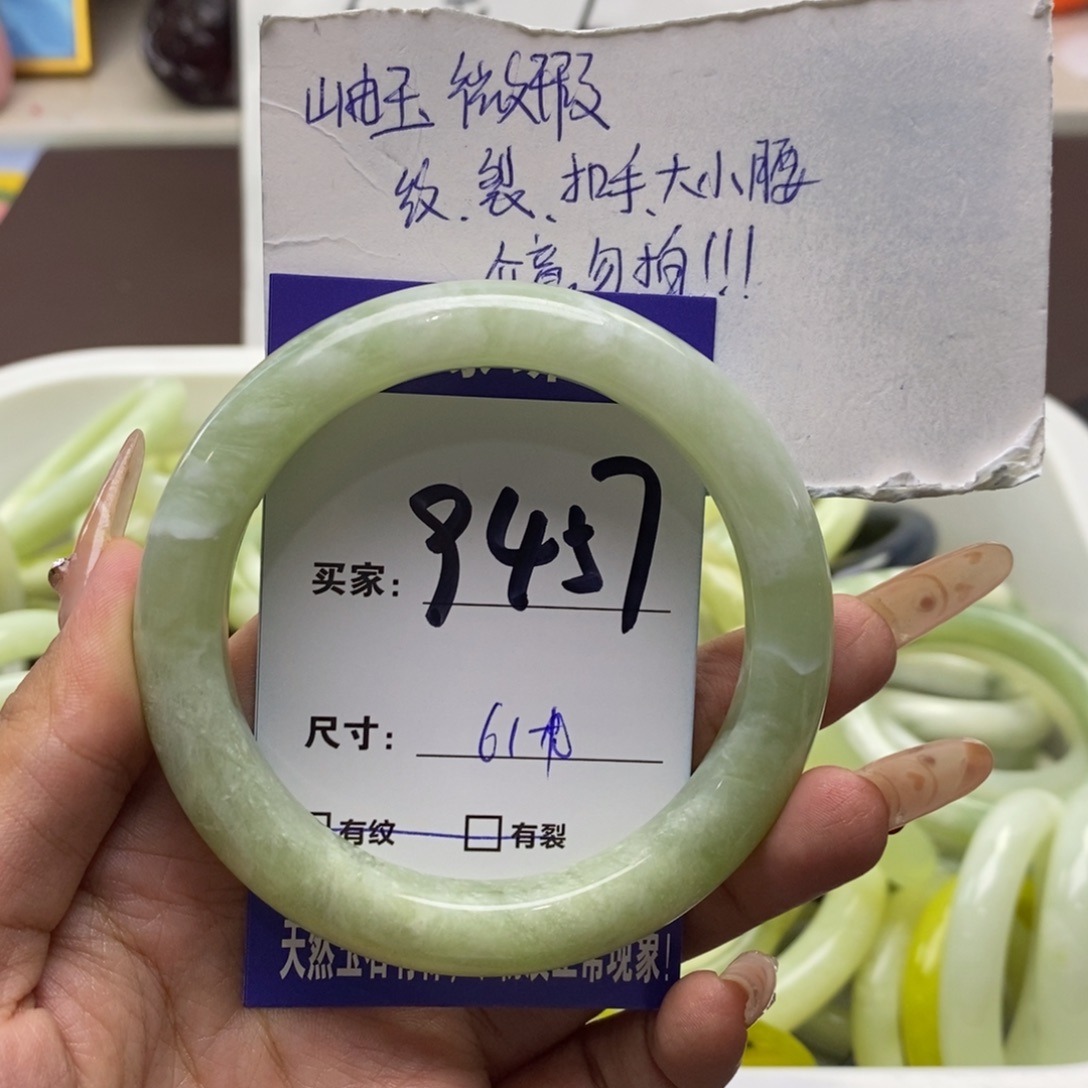 岫玉 微瑕
纹、裂、扣手、大小腰
介意勿拍!!!
买家: 9457
尺寸: 61
有纹 有裂
天然玉石有
常现象!